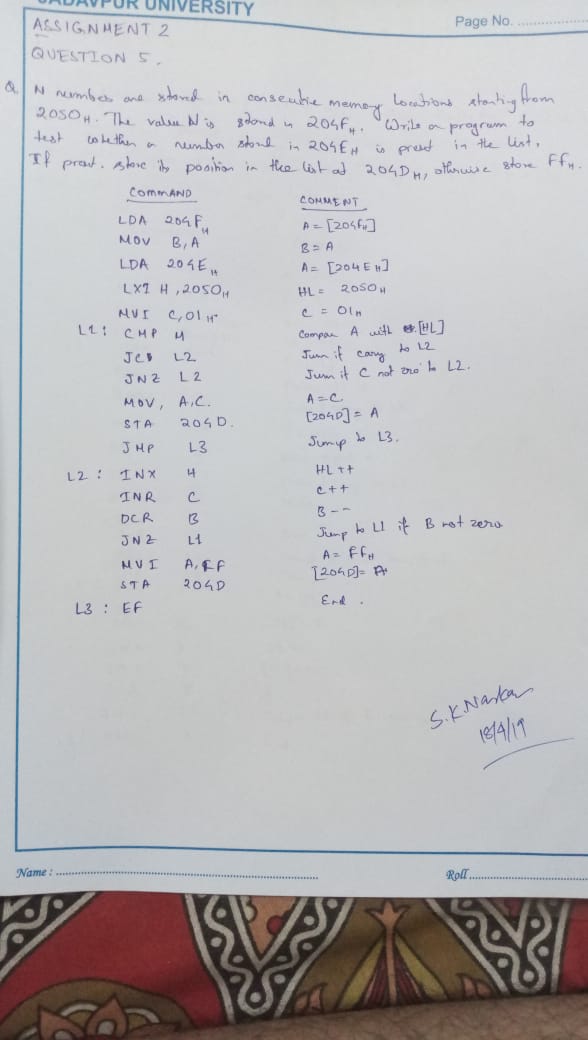 JADAVPUR UNIVERSITY
Page No. ..................
ASSIGNMENT 2
QUESTION 5.
Q. N numbers are stored in consecutive memory locations starting from
2050H. The value N is stored in 204FH. Write a program to
test whether a number stored in 204EH is present in the list,
If present. store its position in the list at 204DH, otherwise store FFH.
COMMAND COMMENT
LDA 204FH A = [204FH]
MOV B, A B = A
LDA 204EH A = [204EH]
LXI H, 2050H HL = 2050H
MVI C, 01H C = 01H
L1: CMP M Compare A with [HL]
JC L2 Jum if carry to L2
JNZ L2 Jum if C not zero to L2.
MOV, A, C. A = C
STA 204D. [204D] = A
JMP L3 Jump to L3.
L2: INX H HL ++
INR C C++
DCR B B--
JNZ L1 Jump to L1 if B not zero
MVI A, FF A = FFH
STA 204D [204D] = A
L3 : EF End.
S.K Naskar
18/4/19
Name : ..................
Roll ..................